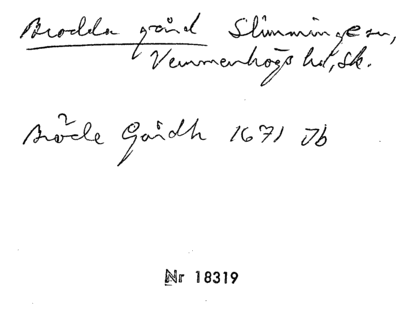 Brodda gård Slimminge sn,
Vemmenhögs hd, Sk.
Bröde Gårdh 1671 Jb
Nr 18319